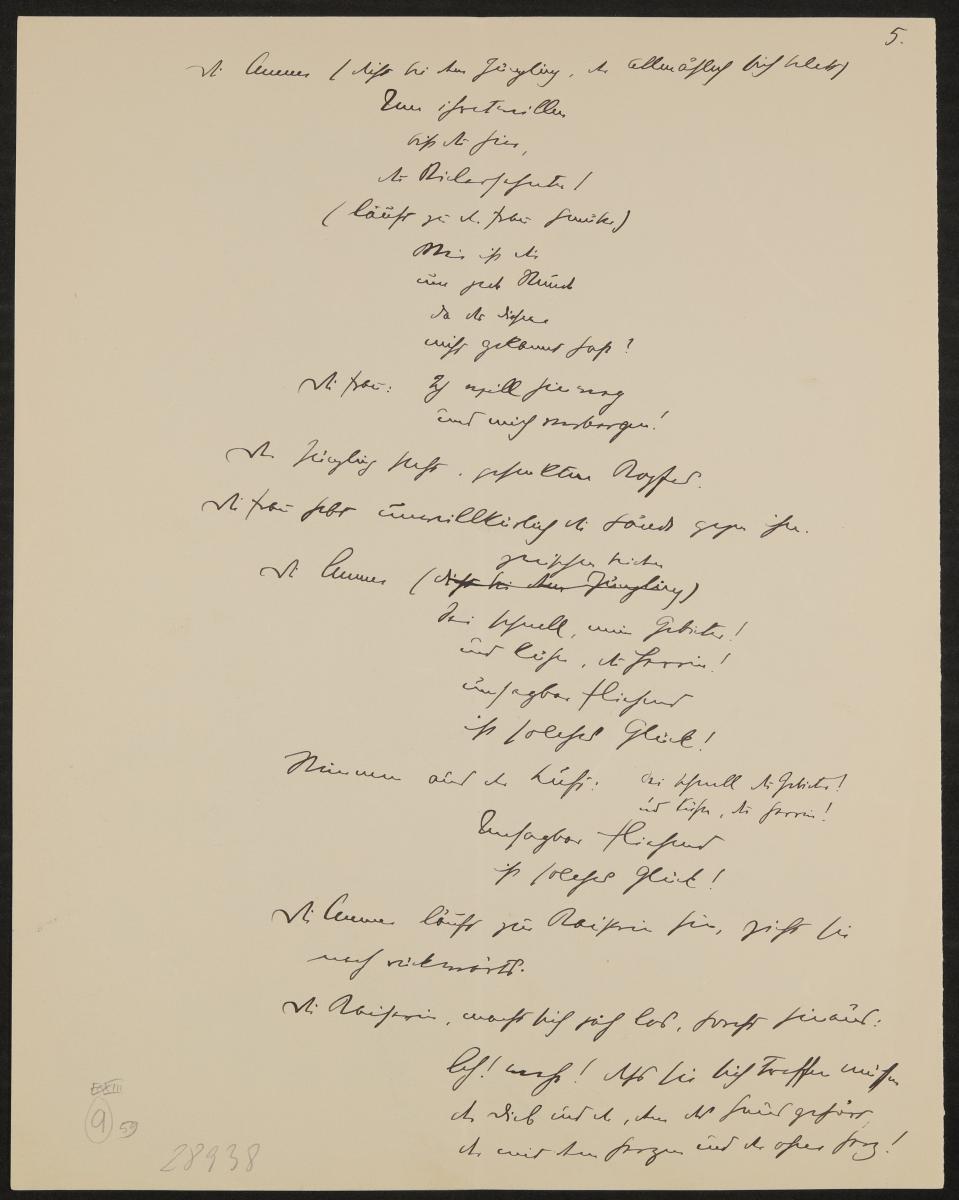 5.
die Amme (dicht bei dem Jüngling, der allmählich sich belebt)
Um ihretwillen
bist du hier,
du Vielersehnter!
(läuft zu der Frau hinüber)
Wer ist die
um jede Stund
da du diesen
nicht gekannt hast?
die Frau: Ich will hinweg
und mich verbergen!
der Jüngling steht, gesenkten Kopfes.
die Frau hebt unwillkürlich die Hände gegen ihn.
zwischen beiden
die Amme (dicht bei dem Jüngling)
Sei schnell, mein Gebieter!
und kühn, du Herrin!
unsagbar fliehend
ist solches Glück!
Stimmen aus der Luft: Sei schnell du Gebieter!
und kühn, du Herrin!
Unsagbar fliehend
ist solches Glück!
die Amme läuft zur Kaiserin hin, zieht sie
nach rückwärts.
die Kaiserin, macht sich jäh los, horcht hinaus:
Ach! weh! dass sie sich treffen müssen
der Dieb und der, dem das Haus gehört,
der mit dem Herzen und der ohne Herz!
EXIII
9
59
28938